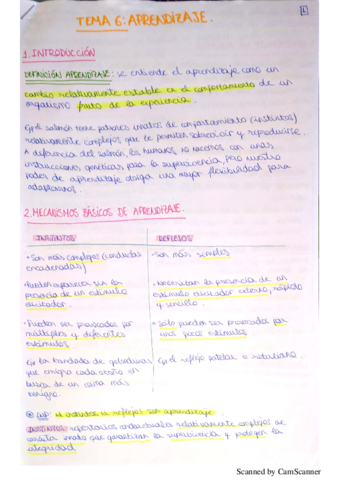 1
TEMA 6: APRENDIZAJE.
1. INTRODUCCIÓN
DEFINICIÓN APRENDIZAJE: se entiende el aprendizaje como un
cambio relativamente estable en el comportamiento de un
organismo fruto de la experiencia.
Ej: el salmón tiene patrones innatos de comportamiento (instintos)
relativamente complejos que te permiten sobrevivir y reproducirse.
A diferencia del salmón, los humanos no nacemos con unas
instrucciones genéticas para la supervivencia, pero nuestro
poder de aprendizaje otorga una mayor flexibilidad para
adaptarnos.
2. MECANISMOS BÁSICOS DE APRENDIZAJE.
INSTINTOS
REFLEJOS
- Son más complejos (conductas
encadenadas)
- Son más simples
- Pueden aparecer sin la
presencia de un estímulo
elicitador.
- Necesitan la presencia de un
estímulo elicitador externo, rápido
y sencillo.
- Pueden ser provocados por
múltiples y diferentes
estímulos
- Solo pueden ser provocado por
unos pocos estímulos.
Ej: la bandada de golondrinas
que emigra cada otoño en
busca de un clima más
benigno.
Ej: el reflejo rotular o rotuliano.
Ni instintos ni reflejos son aprendizaje
INSTINTOS: repertorios conductuales relativamente complejos de
carácter innato que garantizan la supervivencia y protegen la
integridad.
Scanned by CamScanner